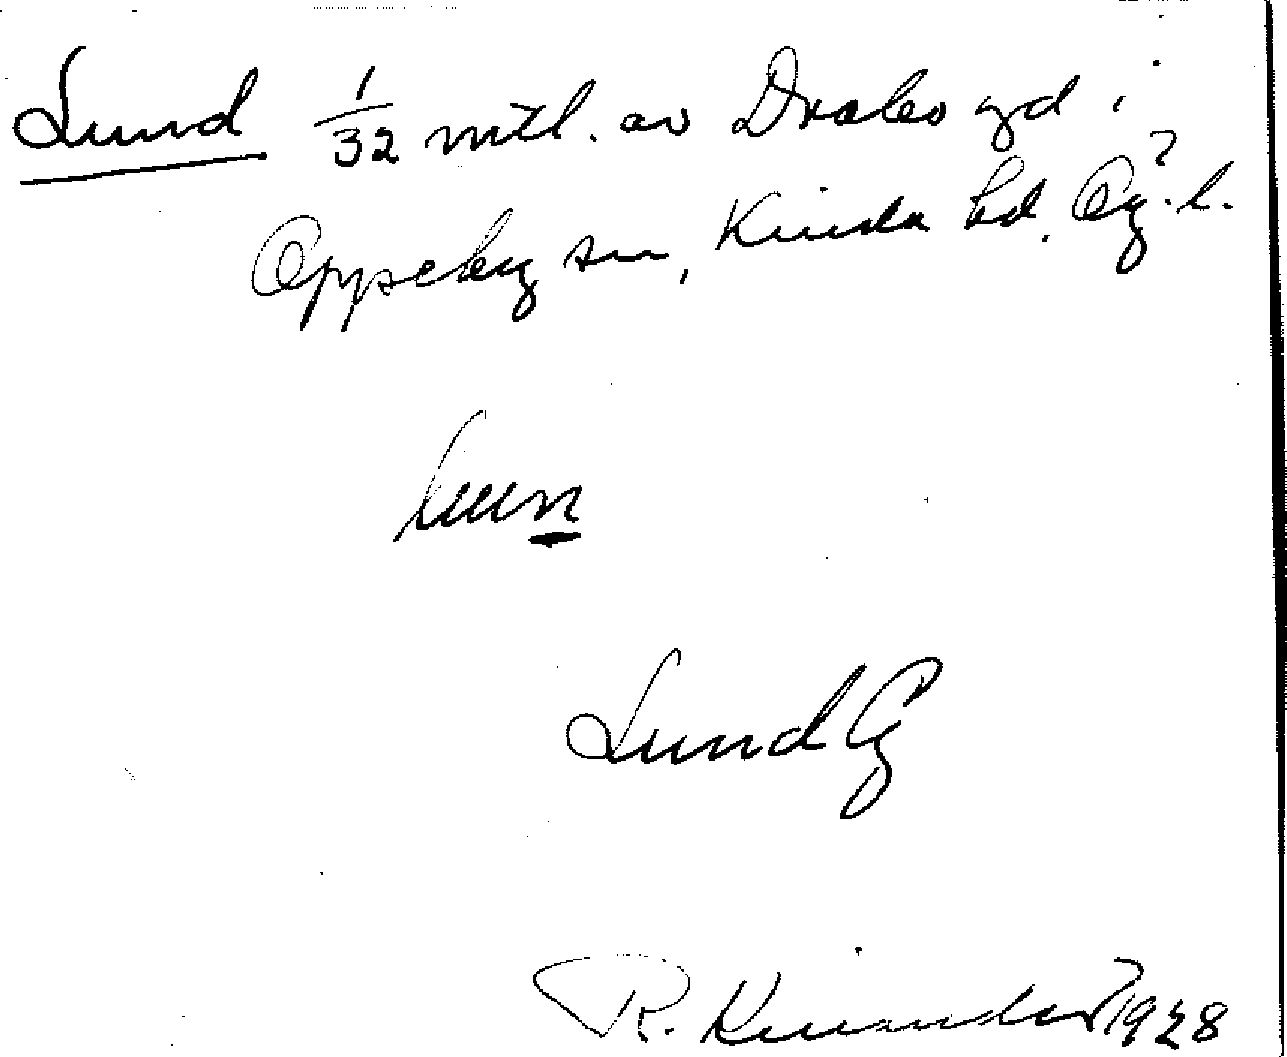 Lund 1/32 mtl. av Drabo gd i
Oppeby sn, Kinda hd. Ög. l.
lunn
Lund
R. Kinander 1928